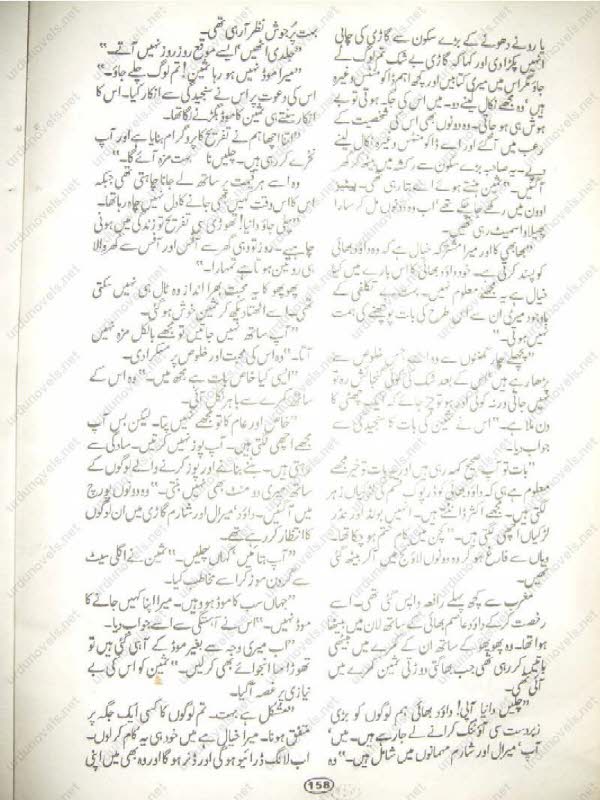 یا رونے دھونے کے بڑے سکون سے گاڑی کی چابی
انہیں پکڑا دی اور کہا کہ گاڑی بے شک تم لوگ لے
جاؤ مگر اس میں میری کتابیں اور کچھ اہم ڈاکومنٹس وغیرہ
ہیں وہ مجھے نکال لینے دو۔ میں اس کی جگہ ہوتی تو بے
ہوش ہی ہو جاتی۔ وہ دونوں بھی اس کی شخصیت کے
رعب میں آگئے اور اسے ڈاکومنٹس وغیرہ نکال لینے
دیے۔ یہ صاحبہ بڑے سکون سے رکشہ میں بیٹھ کر گھر
آگئیں۔" ثمین ہنستے ہوئے اسے بتا رہی تھی۔
اوون میں رکھے جا چکے تھے اب وہ دونوں مل کر سارا
پھیلاوا سمیٹ رہی تھیں۔
"بھابھی کا اور میرا مشترکہ خیال ہے کہ وہ داؤد بھائی
کو پسند کرتی ہے۔ خود داؤد بھائی کا اس بارے میں کیا
خیال ہے یہ مجھے معلوم نہیں۔ بہت بے تکلفی کے
باوجود میری ان سے اس طرح کی بات پوچھنے کی ہمت
نہیں ہوتی۔"
"پچھلے چار گھنٹوں سے وہ اسے جس خلوص سے
پڑھا رہے ہیں اس کے بعد شک کی کوئی گنجائش رہ تو
نہیں جاتی ورنہ کوئی اور ہو تو چڑ جائے کہ ایک چھٹی کا
دن ملا ہے۔" اس نے ثمین کی بات کا سنجیدگی سے
جواب دیا۔
"بات تو آپ صحیح کہہ رہی ہیں اور یہ بات تو خیر مجھے
معلوم ہے ہی کہ داؤد بھائی کو ڈرپوک قسم کی لڑکیاں زہر
لگتی ہیں۔ مجھے اکثر ڈانٹتے ہیں۔ انہیں بولڈ اور نڈر
لڑکیاں اچھی لگتی ہیں۔" کچن میں کام ختم ہو چکا تھا۔
وہاں سے فارغ ہو کر وہ دونوں لاؤنج میں آکر بیٹھ گئی
تھیں۔
مغرب سے کچھ پہلے رافعہ واپس گئی تھی۔ اسے
رخصت کر کے داؤد عاصم بھائی کے ساتھ ان میں بیٹھا
ہوا تھا۔ وہ پھوپھو کے ساتھ ان کے کمرے میں بیٹھی
باتیں کر رہی تھی جب بھاگتی دوڑتی ثمین کمرے میں
آئی تھی۔
"چلیں دانیا آپی! داؤد بھائی ہم لوگوں کو بڑی
زبردست سی آؤٹنگ کرانے لے جا رہے ہیں۔ میں
آپ، میرال اور شارم مہمانوں میں شامل ہیں۔" وہ
بہت پرجوش نظر آرہی تھی۔
"جلدی اٹھیں ایسے موقع روز روز نہیں آتے۔"
"میرا موڈ نہیں ہو رہا ثمین! تم لوگ چلے جاؤ۔"
اس کی دعوت پر اس نے سنجیدگی سے انکار کیا۔ اس کا
انکار سنتے ہی ثمین کا موڈ بگڑنے لگا تھا۔
"اتنا اچھا ہم نے تفریح کا پروگرام بنایا ہے اور آپ
نخرے کر رہی ہیں۔ چلیں نا بہت مزہ آئے گا۔"
وہ اسے ہر قیمت پر ساتھ لے جانا چاہتی تھی جبکہ
اس کا اس وقت کہیں بھی جانے کا دل نہیں چاہ رہا تھا۔
"چلی جاؤ دانیا! تھوڑی سی تفریح تو زندگی میں ہونی
چاہیے۔ روز تو وہی گھر سے آفس اور آفس سے گھر والا
ہی روٹین ہوتا ہے تمہارا۔"
پھوپھو کا یہ محبت بھرا انداز وہ ٹال ہی نہیں سکتی
تھی۔ اسے اٹھتا دیکھ کر ثمین خوش ہو گئی۔
"آپ ساتھ نہیں جاتیں تو مجھے بالکل مزہ نہیں
آتا۔" وہ اس کی محبت اور خلوص پر مسکرا دی۔
"ایسی کیا خاص بات ہے مجھ میں۔" وہ اس کے
ساتھ کمرے سے باہر نکل آئی۔
"خاص اور عام کا تو مجھے نہیں پتا۔ لیکن بس آپ
مجھے اچھی لگتی ہیں۔ آپ پوز نہیں کرتیں۔ سادگی سے
رہتی ہیں۔ بننے بنانے اور پوز کرنے والے لوگوں کے
ساتھ میری دو منٹ بھی نہیں بنتی۔" وہ دونوں پورچ
میں آگئیں۔ داؤد، میرال اور شارم گاڑی میں ان لوگوں
کا انتظار کر رہے تھے۔
"آپ بتائیں کہاں چلیں۔" ثمین نے اگلی سیٹ
سے گردن موڑ کر اسے مخاطب کیا۔
"جہاں سب کا موڈ ہو وہیں۔ میرا اپنا کہیں جانے کا
موڈ نہیں۔" اس نے آہستگی سے اسے جواب دیا۔
"اب میری وجہ سے بغیر موڈ کے آ ہی گئی ہیں تو
تھوڑا سا انجوائے بھی کر لیں۔" ثمین کو اس کی بے
نیازی پر غصہ آگیا۔
"مشکل ہے بہت۔ تم لوگوں کا کسی ایک جگہ پر
متفق ہونا۔ میرا خیال ہے میں خود ہی یہ کام کر لوں۔
اب لانگ ڈرائیو ہوگی اور ڈنر ہوگا اور وہ بھی میں اپنی
158
urdunovels.net